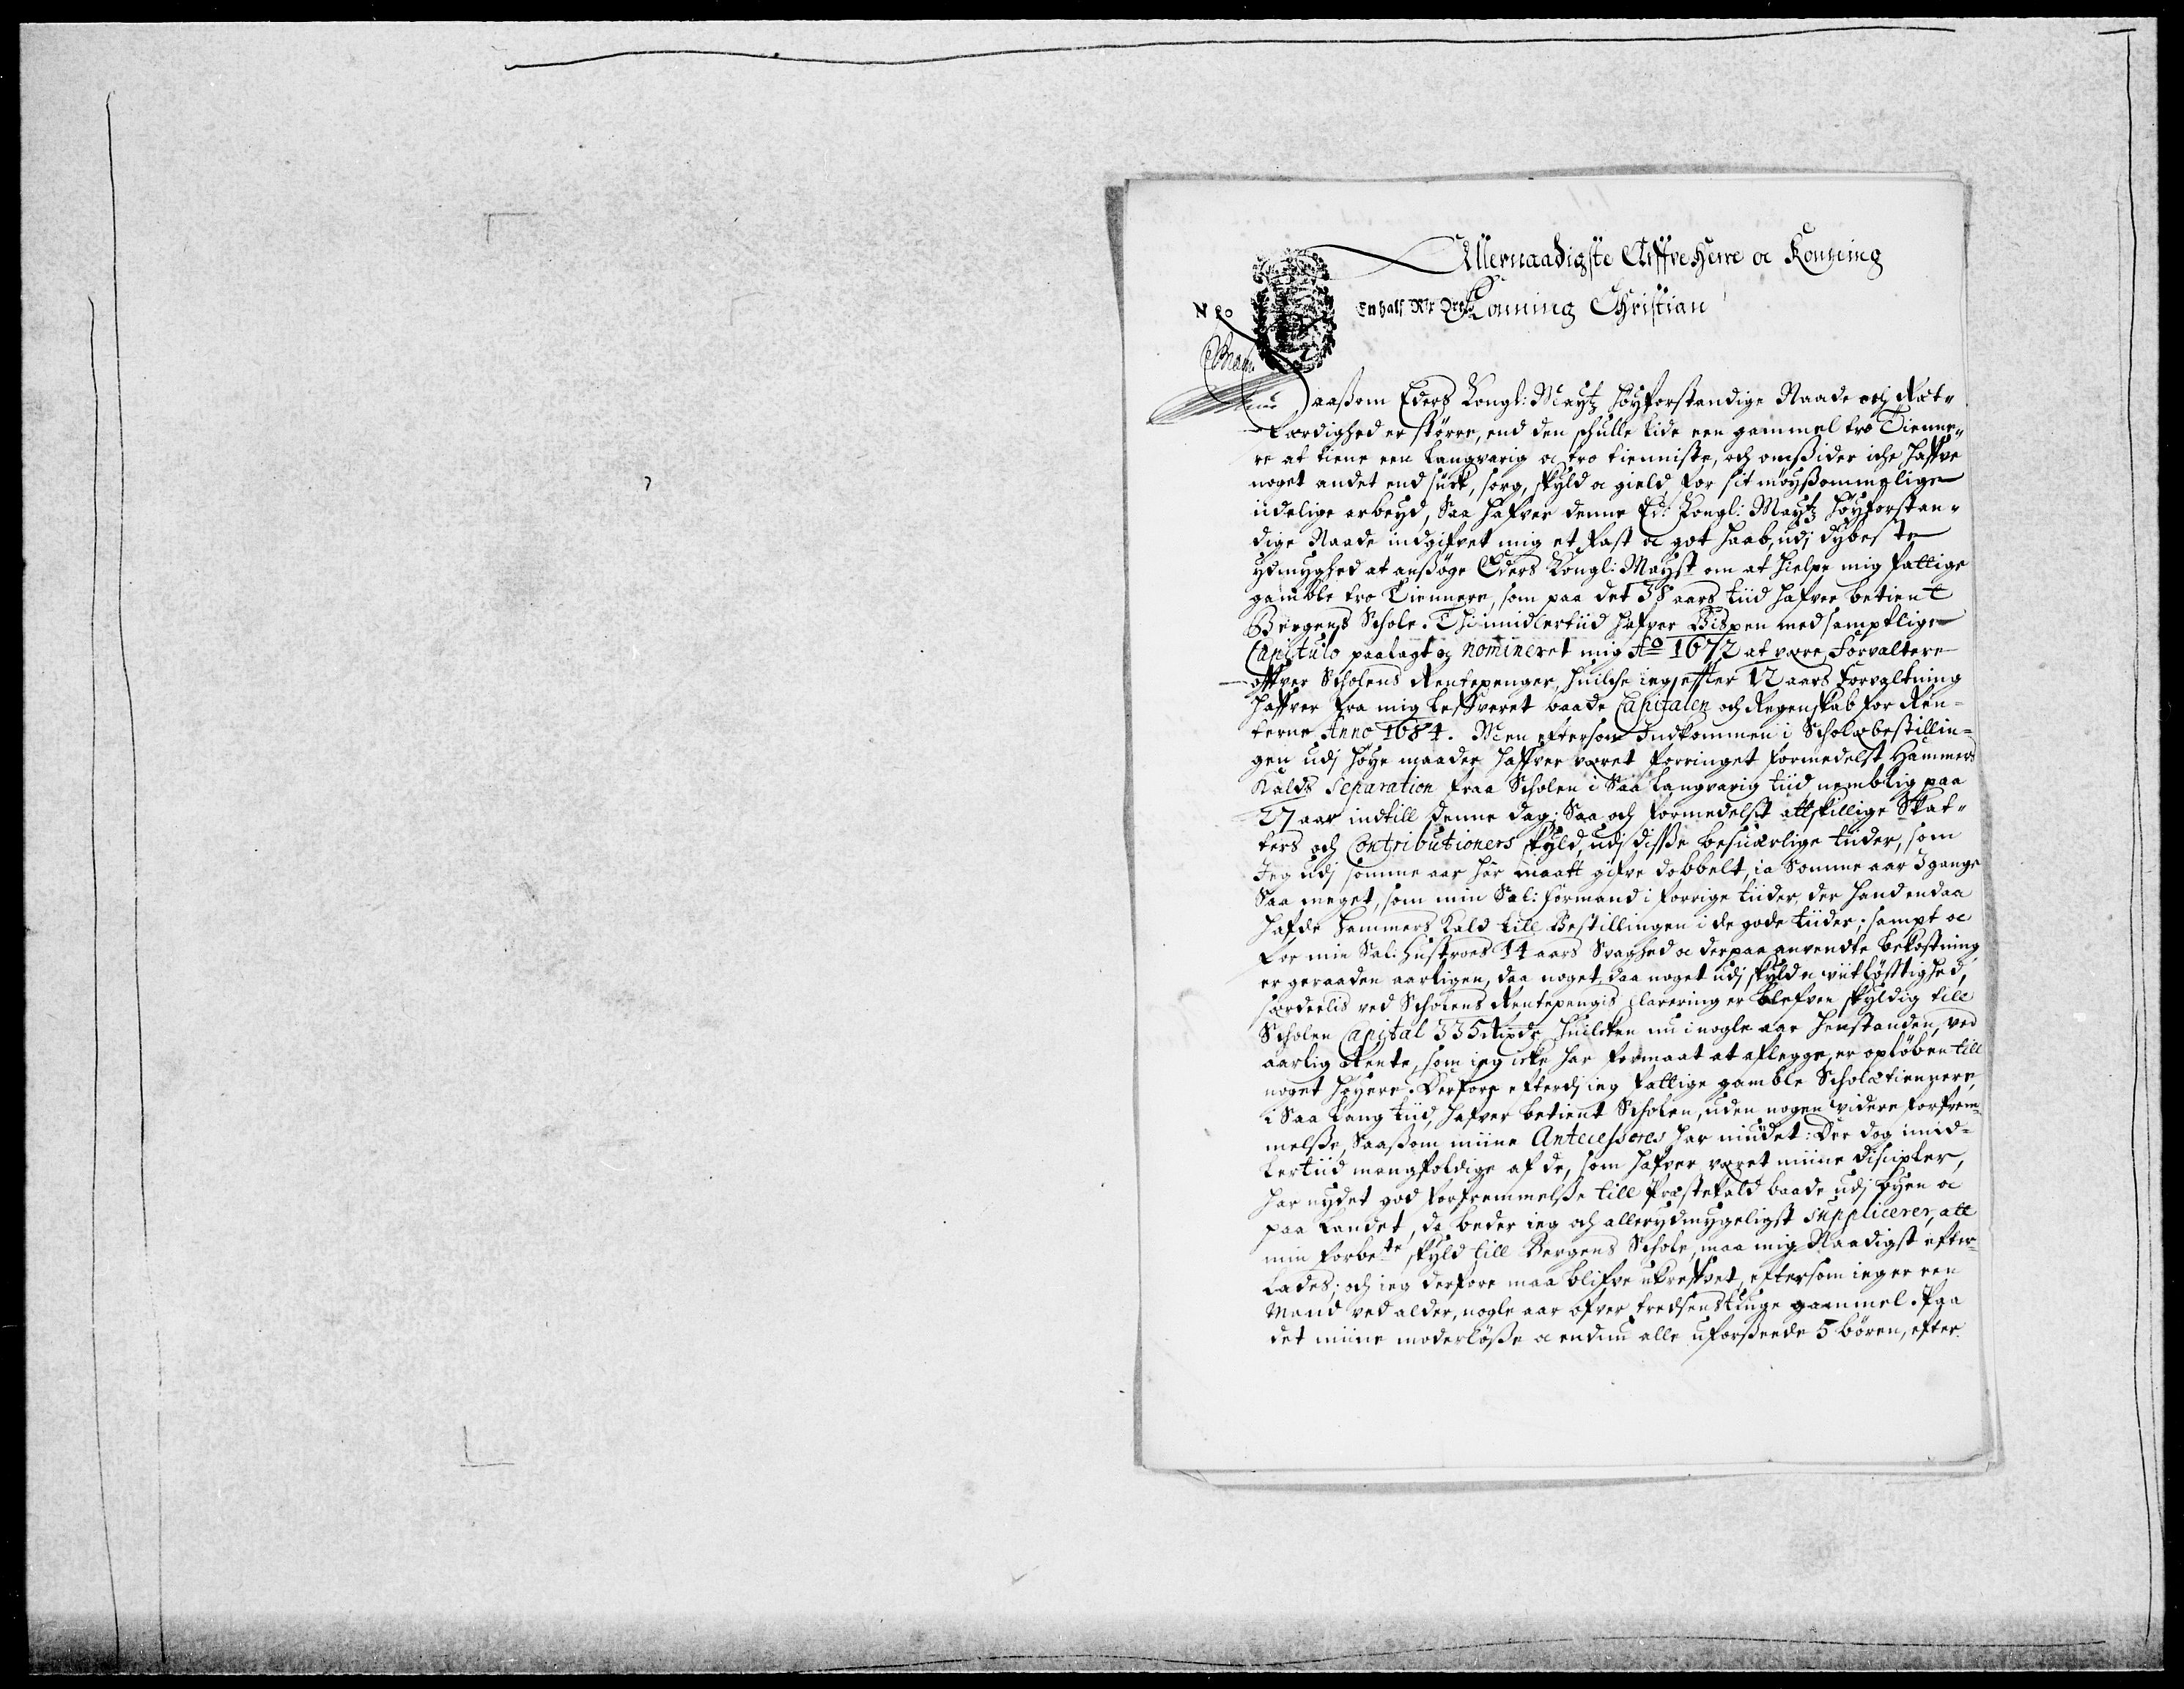 Allernaadigste Arffve Herre oc Konning
No
En half Rdr Ort
Konning Christian
Saasom Eders Kongl: Maÿtz höÿforstandige Naade och Ræt-
færdighed er större, end den schulle lide een gammel tro Tienne-
re at tiene een langvarig oc tro tienniste, och omsider iche haffve
noget andet end suck, sorg, skyld oc gield for sit möÿsommelige
idelige arbeÿd, Saa hafver denne Ed: Kongl: Maÿtz höÿforstan-
dige Naade indgifvet mig et fast oc got haab, udj dybeste
ydmyghed at ansöge Eders Kongl: Maÿst om at hielpe mig fattige
gamble tro Tiennere, som paa det 38 aars tiid hafver betient
Bergens Schole. Thi imidlertiid hafver Bispen med samptlige
Capitulo paalagt og nomineret mig Ao 1672 at være Forvaltere
offver Scholens Rentepenger, huilche ieg effter 12 aars forvaltning
haffver fra mig lefveret baade Capitalen och Regenskab for Ren-
terne Anno 1684. Men eftersom Indkommen i Scholebestillin-
gen udj höÿe maader haffver været forringet formedelst Hammers
Kalds Separation fraa Scholen i Saa langvarig tiid, nemblig paa
27 aar indtill denne dag; Saa och formedelst attskillige Skat-
ters och Contributioners skyld, udj disse besuærlige tiider, som
Jeg udj somme aar har maatt gifve dobbelt, ia Somme aar 3 gange
Saa meget, som min Sal: formand i forrige tiider, der hand endaa
hafde Hammers Kald till Bestillingen i de gode tiider; sampt oc
for min Sal: hustroes 14 aars Svaghed oc derpaa anvendte bekostning
er geraaden aarligen, daa noget, daa noget udj skyld oc viitlöfftighed,
særdeelis ved Scholens Rentepengis Clarering er blefven skyldig till
Scholen Capital 335 Rixdr. huilcken nu i nogle aar henstanden, ved
aarlig Rente, som ieg icke har formaat at aflegge, er oplöben till
noget höÿere. Derfore efterdj ieg fattige gamble Scholetiennere,
i Saa lang tiid, hafver betient Scholen, uden nogen videre forfrem-
melse, Saasom miine Antecessores har niudet: Der dog imid-
lertiid mangfoldige af de, som hafver været miine Discipler,
har nydet god forfremmelse till Præstekald baade udj byen oc
paa Landet, da beder ieg och allerydmygeligst supplicerer, att
min forbete skyld till Bergens Schole, maa mig Naadigst efter-
lades; och ieg derfore maa blifve ukræfvet, eftersom ieg er een
Mand ved alder, nogle aar ofver tredsenstiuge gammel. Paa
det miine moderlöse oc endnu alle uforseende 5 bören, efter